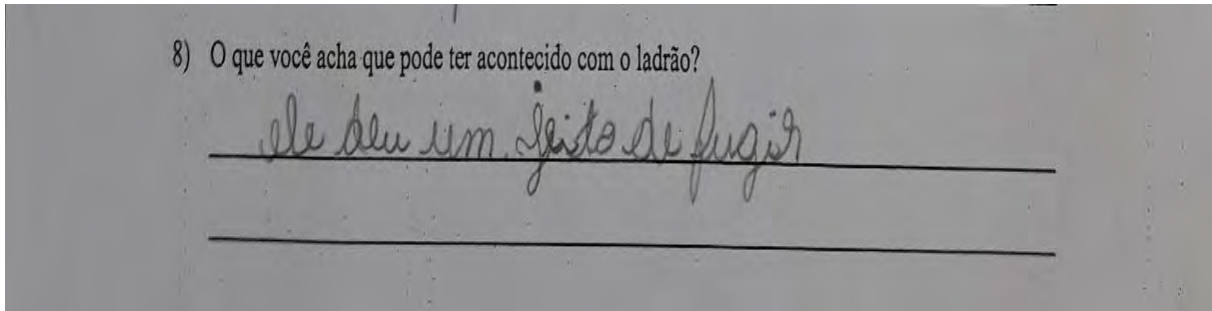 8) O que você acha que pode ter acontecido com o ladrão?
ele deu um jeito de fugir